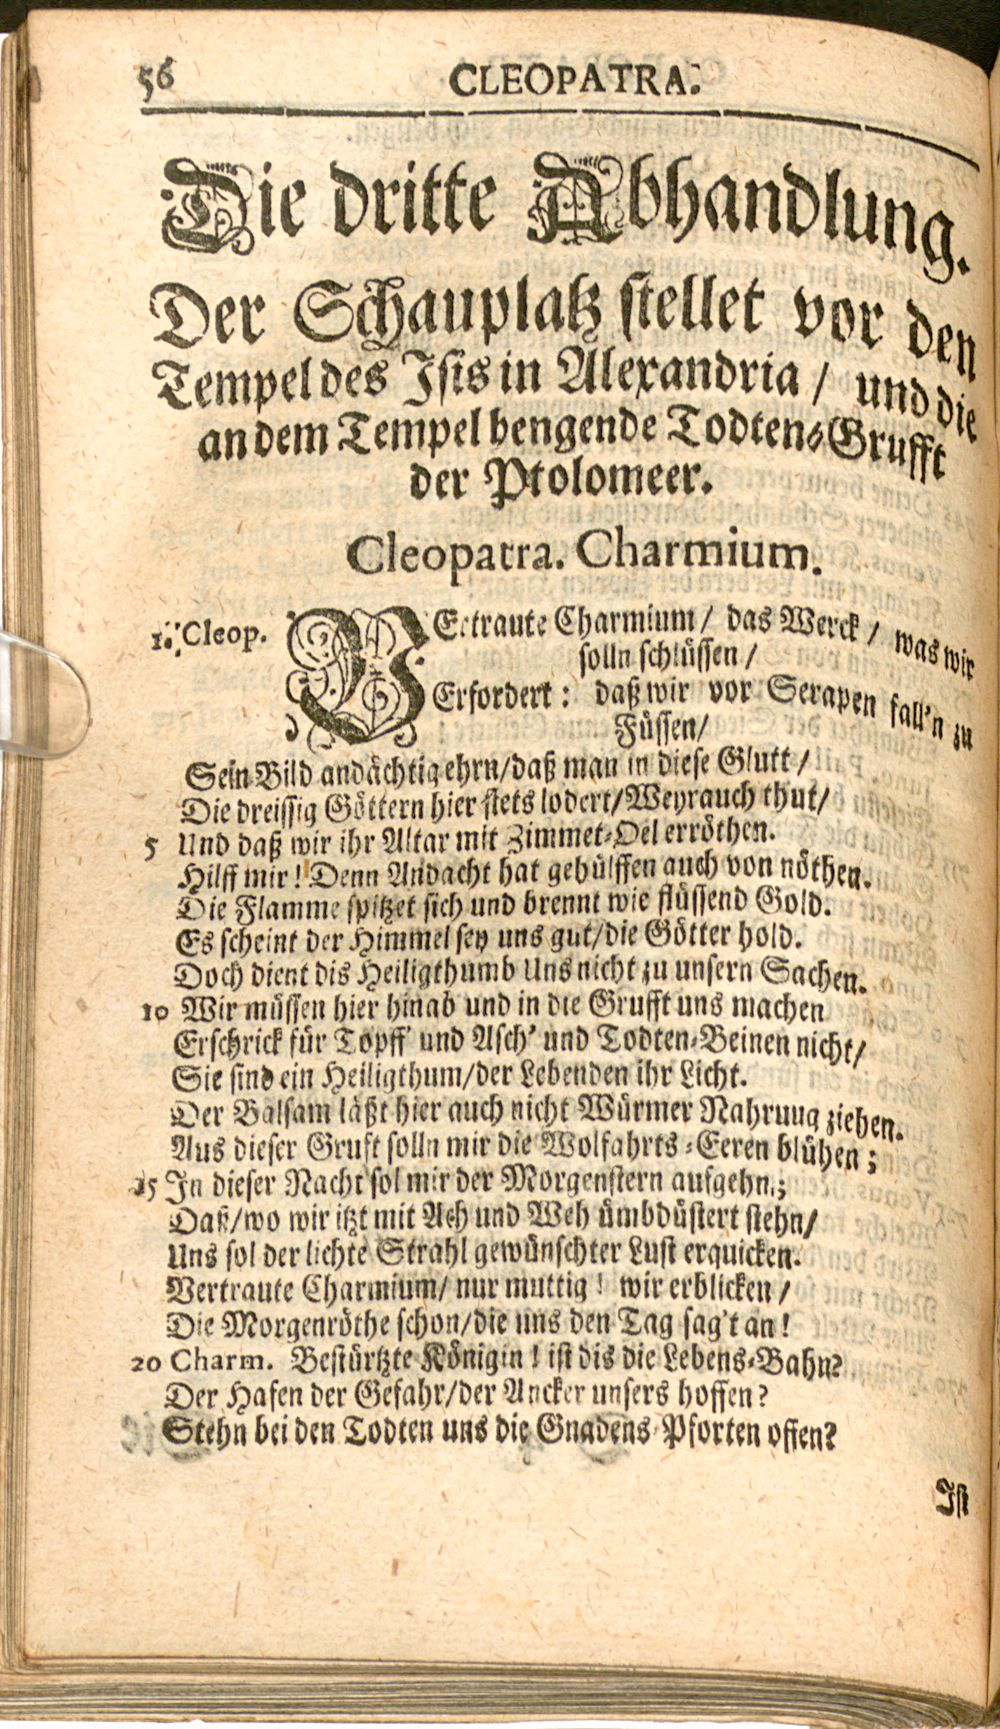 56 CLEOPATRA.
Die dritte Abhandlung.
Der Schauplatz stellet vor den
Tempel des Isis in Alexandria / und die
an dem Tempel hengende Todten-Grufft
der Ptolomeer.
Cleopatra. Charmium.
1. Cleop. VErtraute Charmium / das Werck / was wir
solln schlüssen /
Erfordert: daß wir vor Serapen fall'n zu
Füssen/
Sein Bild andächtig ehrn/daß man in diese Glutt /
Die dreissig Göttern hier stets lodert/Weyrauch thut/
5 Und daß wir ihr Altar mit Zimmet-Oel erröthen.
Hilff mir! Denn Andacht hat gehülffen auch von nöthen.
Die Flamme spitzet sich und brennt wie flüssend Gold.
Es scheint der Himmel sey uns gut/die Götter hold.
Doch dient dis Heiligthumb Uns nicht zu unsern Sachen.
10 Wir müssen hier hinab und in die Grufft uns machen
Erschrick für Topff' und Asch' und Todten-Beinen nicht/
Sie sind ein Heiligthum/der Lebenden ihr Licht.
Der Balsam läßt hier auch nicht Würmer Nahruug ziehen.
Aus dieser Gruft solln mir die Wolfahrts-Eeren blühen;
15 In dieser Nacht sol mir der Morgenstern aufgehn;
Daß/wo wir itzt mit Ach und Weh ümbdüstert stehn/
Uns sol der lichte Strahl gewünschter Lust erquicken.
Vertraute Charmium/ nur muttig! wir erblicken /
Die Morgenröthe schon/die uns den Tag sag't an!
20 Charm. Bestürtzte Königin! ist dis die Lebens-Bahn?
Der Hafen der Gefahr/der Ancker unsers hoffen?
Stehn bei den Todten uns die Gnadens-Pforten offen?
Ist